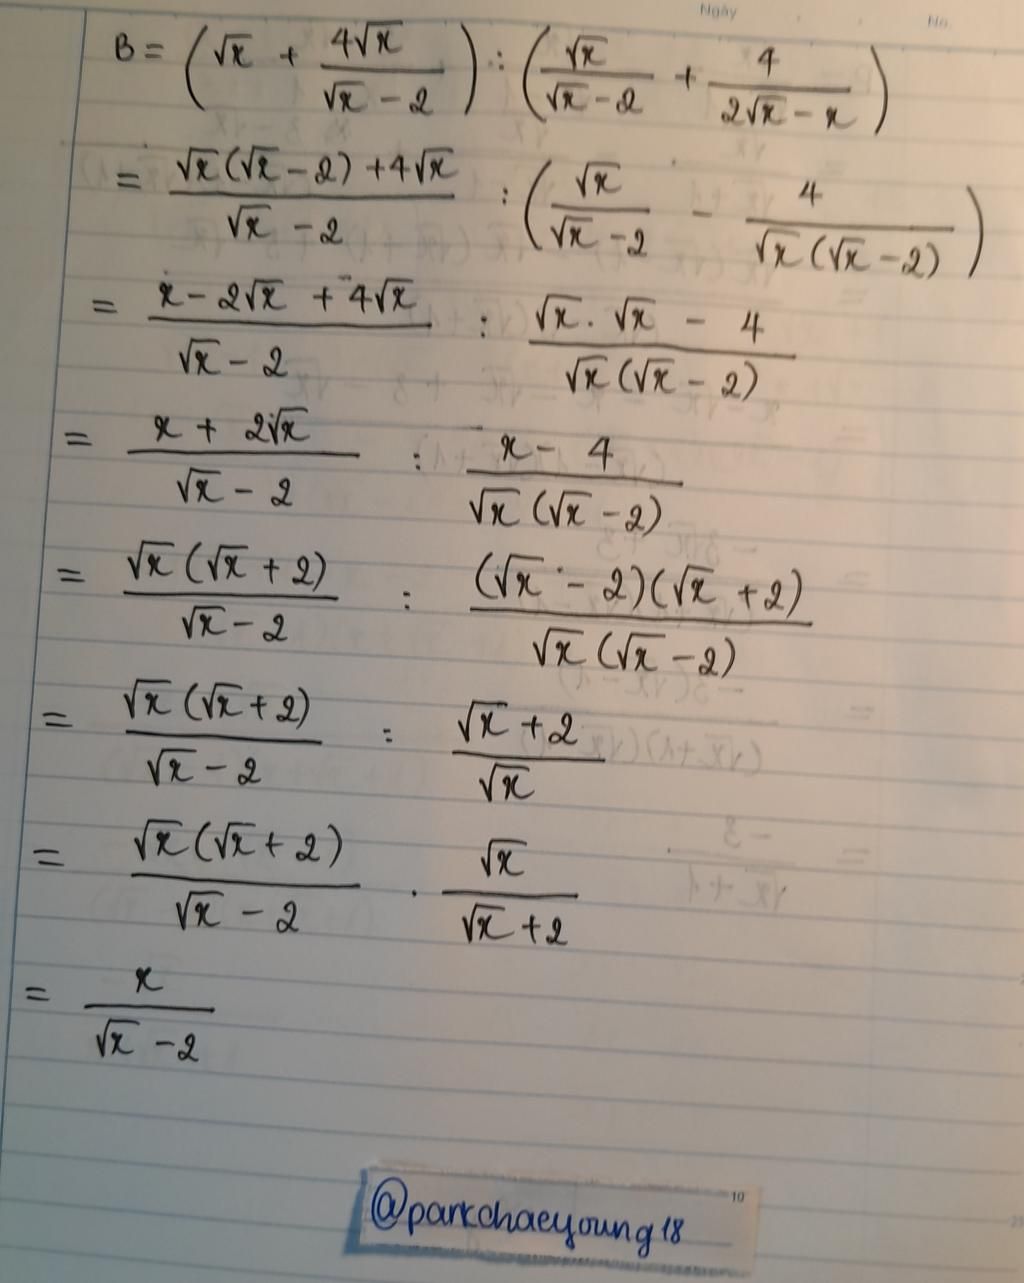 Ngày No.
B = (√x + 4√x/(√x - 2)) : (√x/(√x - 2) + 4/(2√x - x))
= (√x(√x - 2) + 4√x)/(√x - 2) : (√x/(√x - 2) - 4/(√x(√x - 2)))
= (x - 2√x + 4√x)/(√x - 2) : (√x . √x - 4)/(√x(√x - 2))
= (x + 2√x)/(√x - 2) : (x - 4)/(√x(√x - 2))
= (√x(√x + 2))/(√x - 2) : ((√x - 2)(√x + 2))/(√x(√x - 2))
= (√x(√x + 2))/(√x - 2) : (√x + 2)/√x
= (√x(√x + 2))/(√x - 2) . √x/(√x + 2)
= x/(√x - 2)
10
@parkchaeyoung18